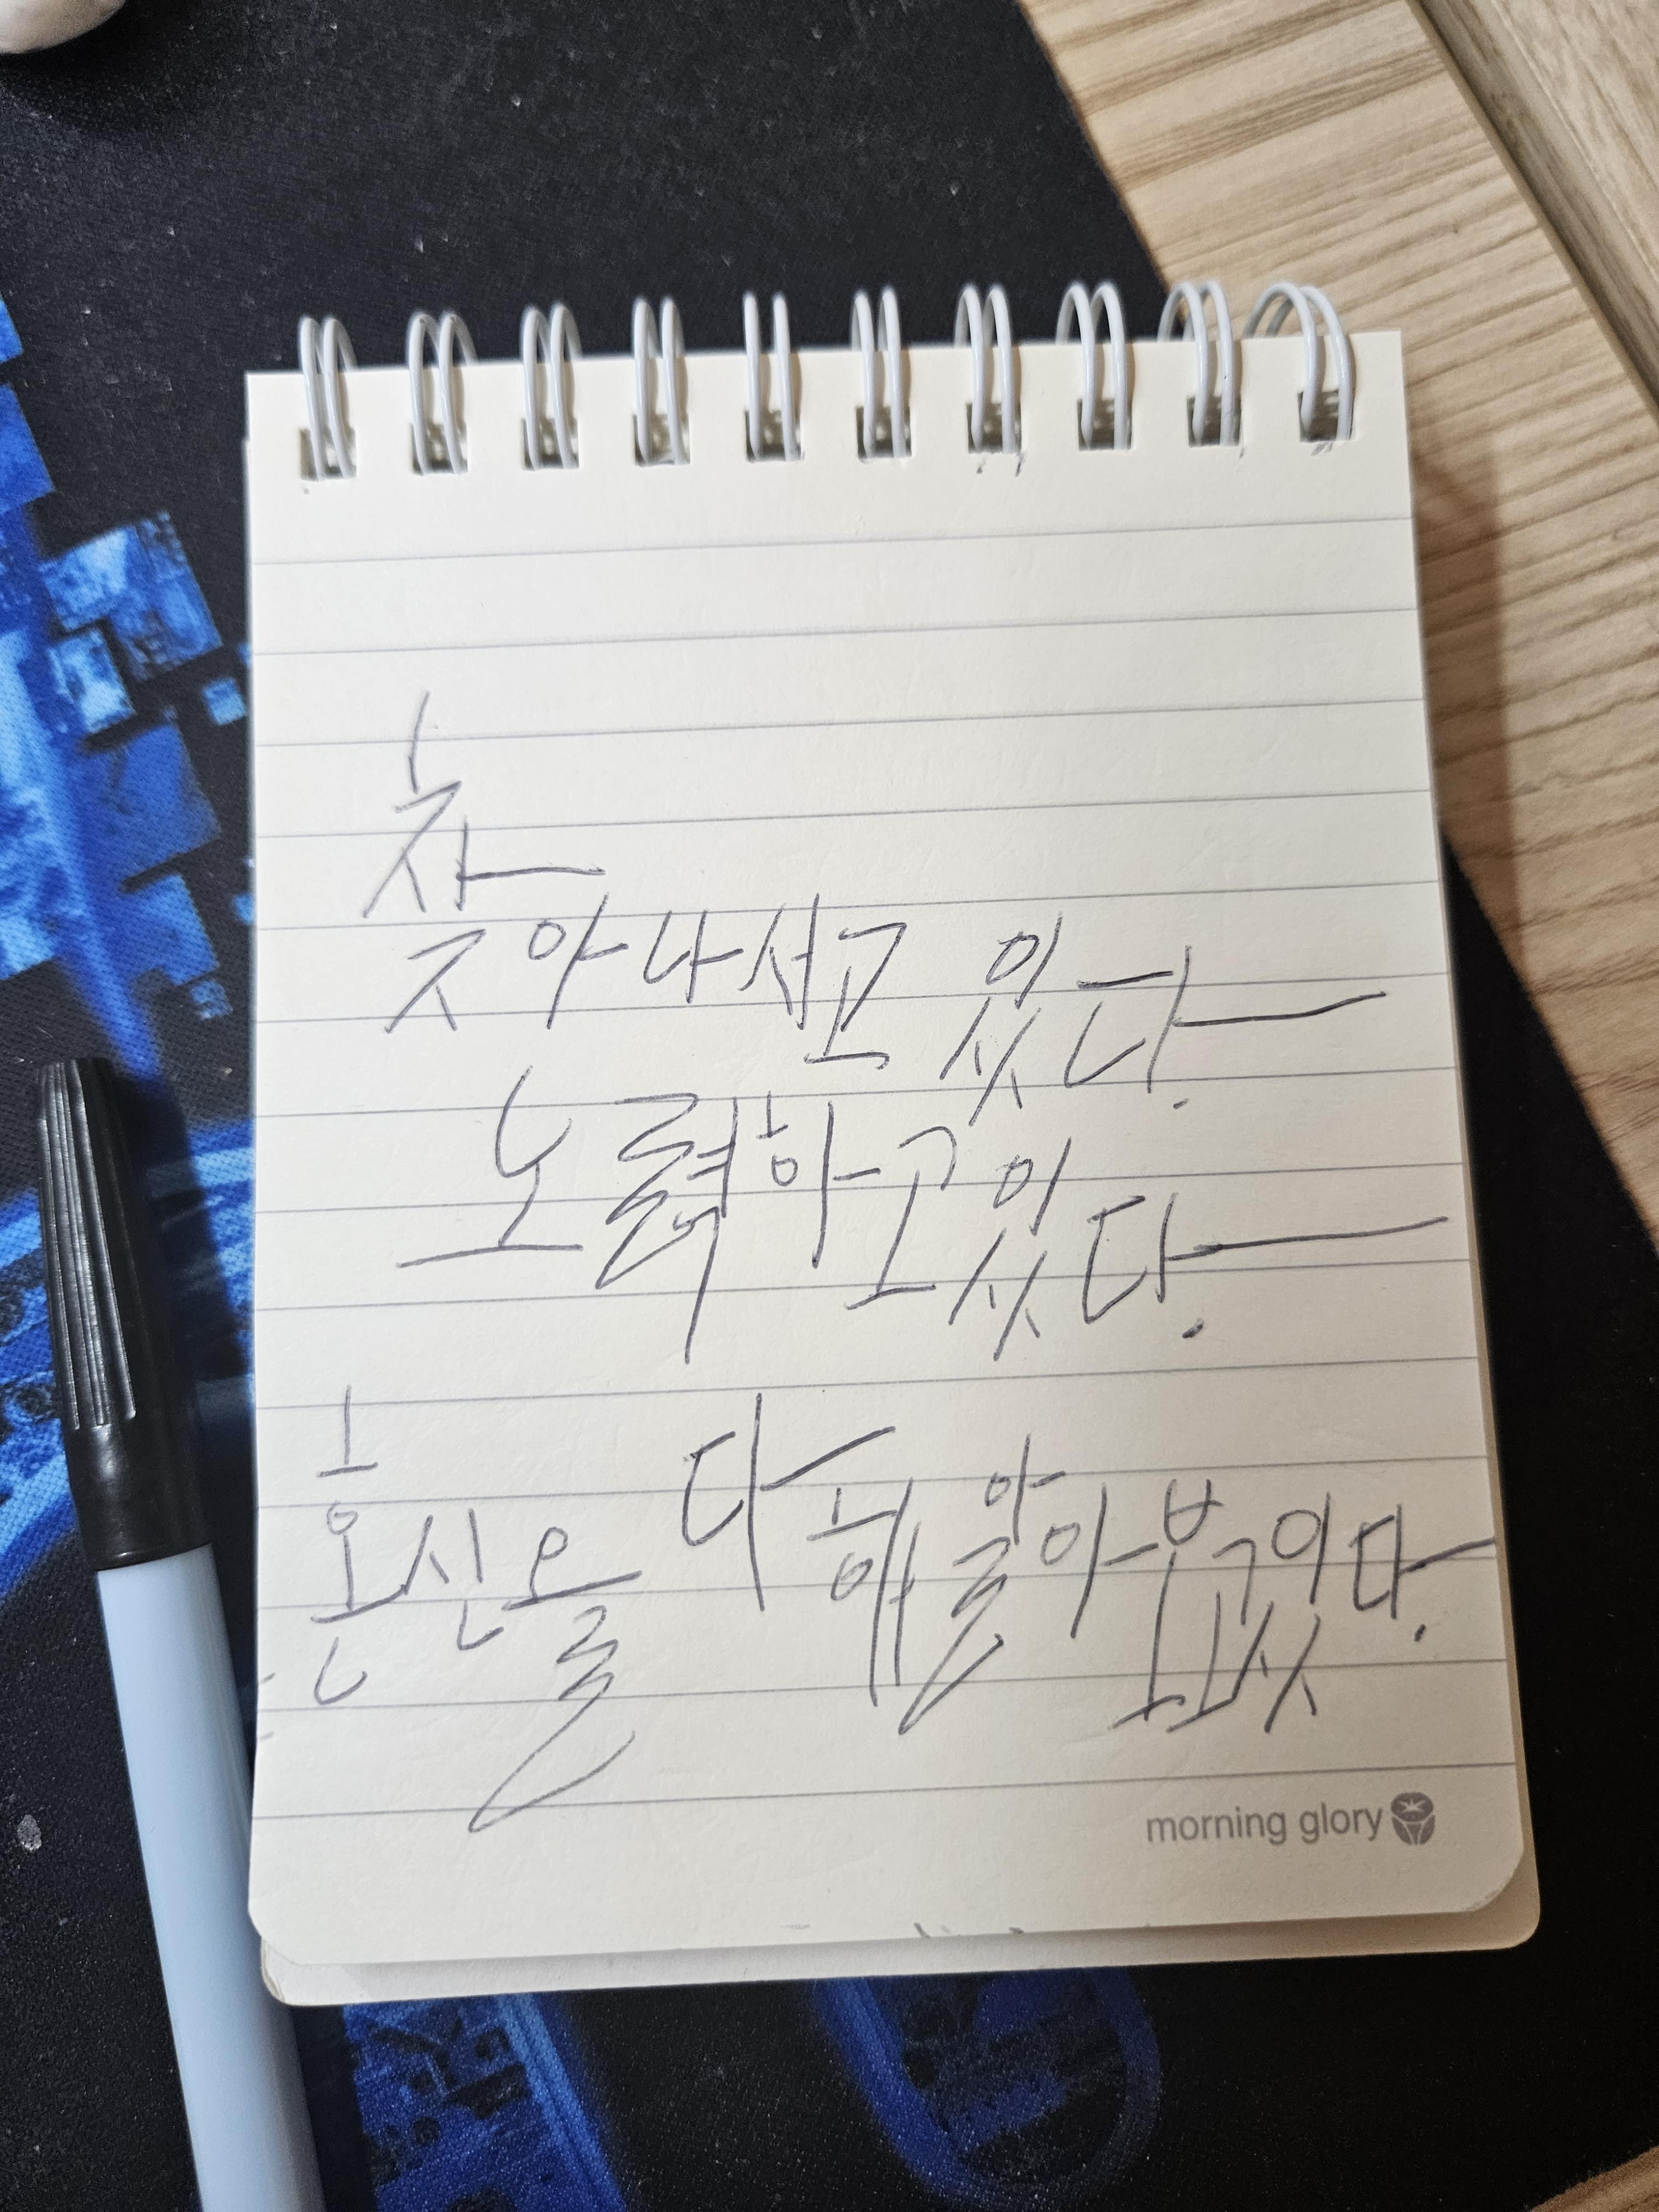 찾아나서고 있다.
노력하고 있다.
혼신을 다해 알아보고있다.
morning glory